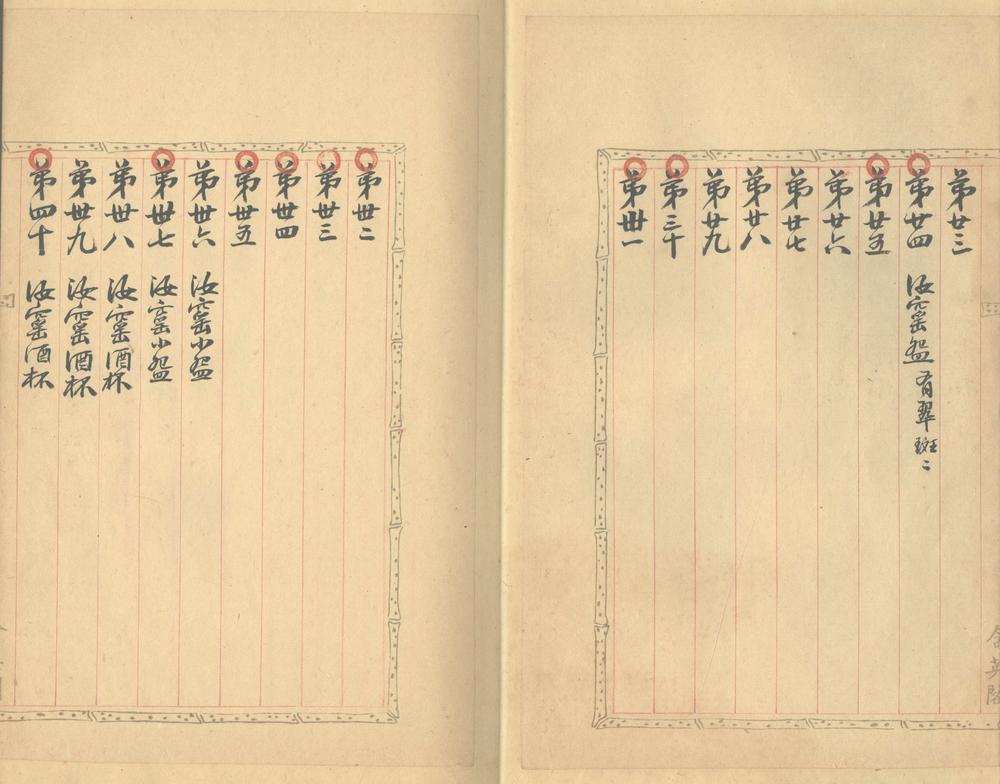 第廿三
第廿四 汝窰盌 有翠斑二
第廿五
第廿六
第廿七
第廿八
第廿九
第三十
第卅一
第卅二
第卅三
第卅四
第卅五
第卅六 汝窰小盌
第卅七 汝窰小盌
第卅八 汝窰酒杯
第卅九 汝窰酒杯
第四十 汝窰酒杯